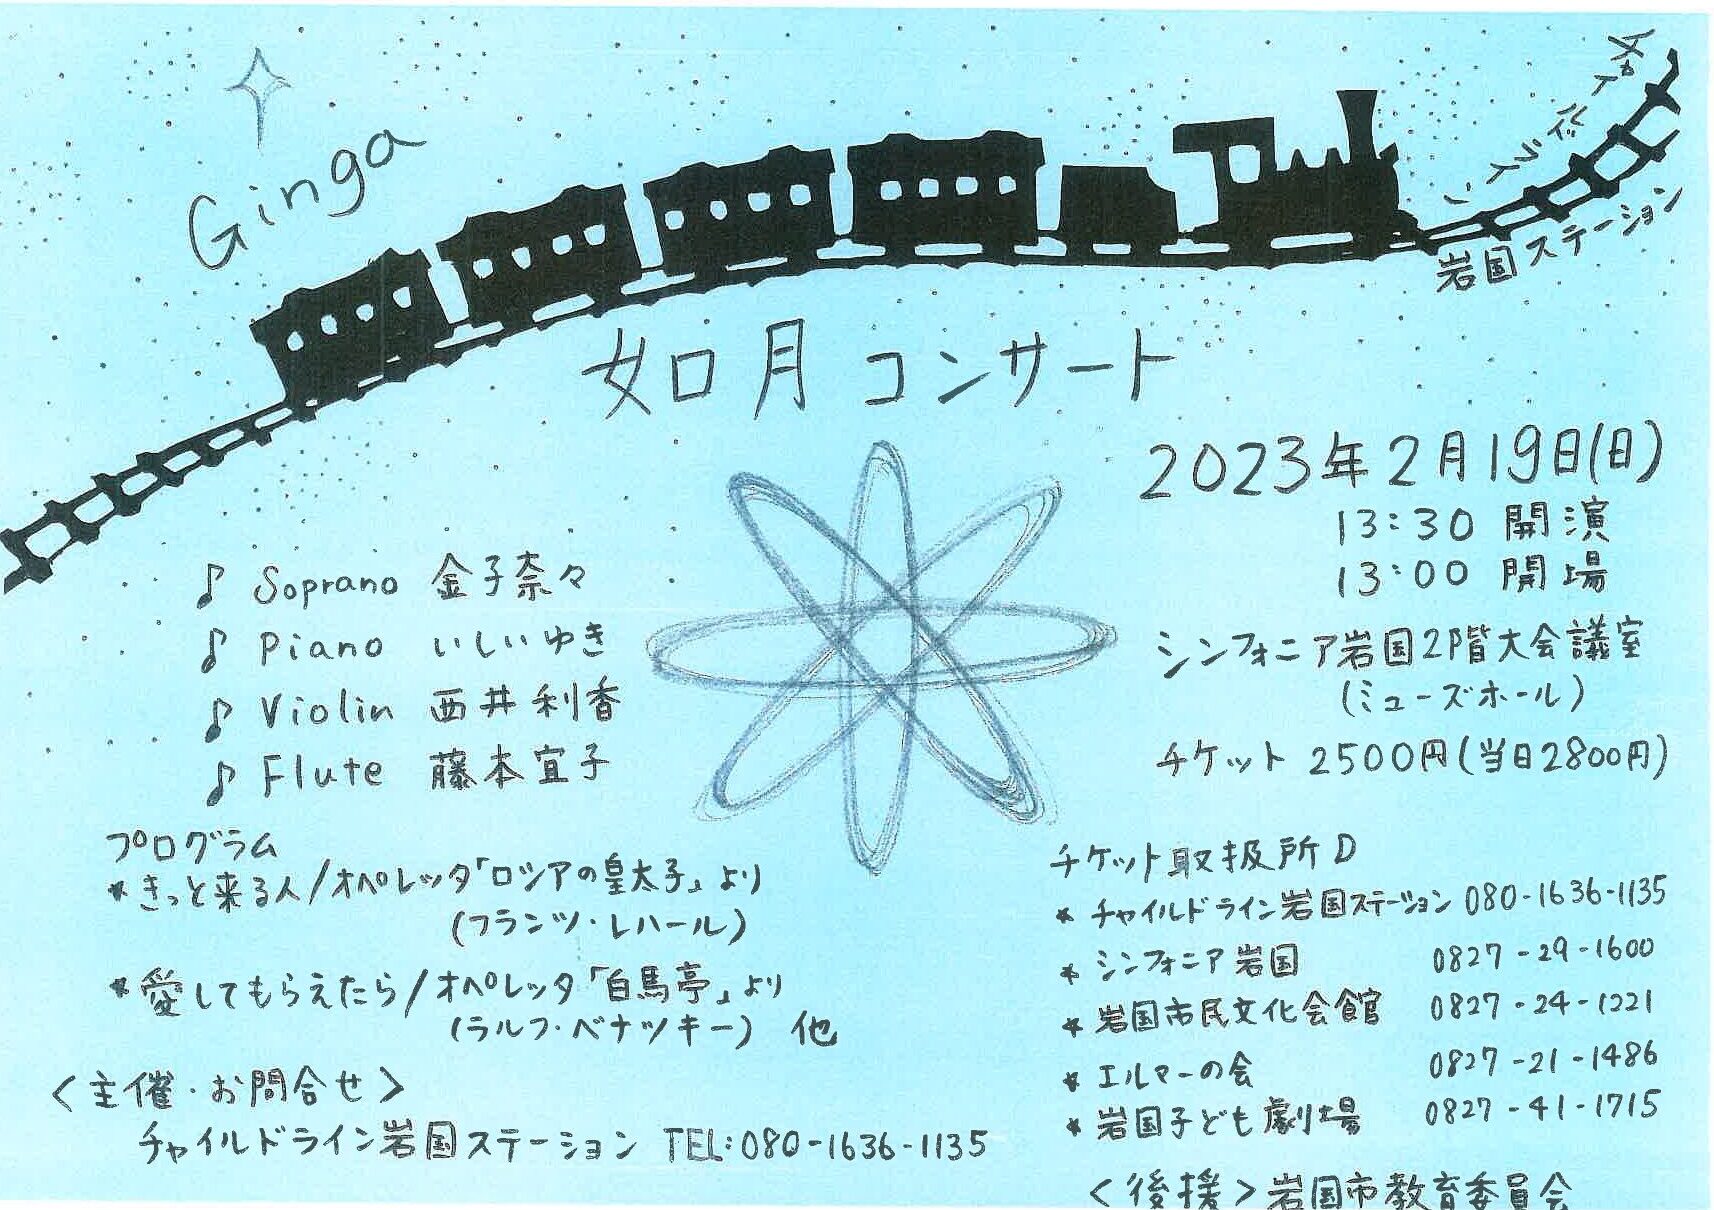 Ginga
チャイルドライン
岩国ステーション
如月コンサート
2023年2月19日(日)
13:30 開演
13:00 開場
シンフォニア岩国2階大会議室
(ミューズホール)
チケット 2500円(当日2800円)
♪ Soprano 金子奈々
♪ Piano いしいゆき
♪ Violin 西井利香
♪ Flute 藤本宜子
プログラム
*きっと来る人/オペレッタ「ロシアの皇太子」より
(フランツ・レハール)
*愛してもらえたら/オペレッタ「白馬亭」より
(ラルフ・ベナツキー) 他
<主催・お問合せ>
チャイルドライン岩国ステーション TEL:080-1636-1135
チケット取扱所 D
* チャイルドライン岩国ステーション 080-1636-1135
* シンフォニア岩国 0827-29-1600
* 岩国市民文化会館 0827-24-1221
* エルマーの会 0827-21-1486
* 岩国子ども劇場 0827-41-1715
<後援>岩国市教育委員会